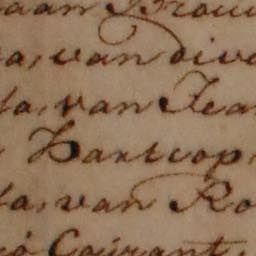 aan Brouw
a, van dive
la, van Jean
Hartcop,
la, van Ro
io Courant,